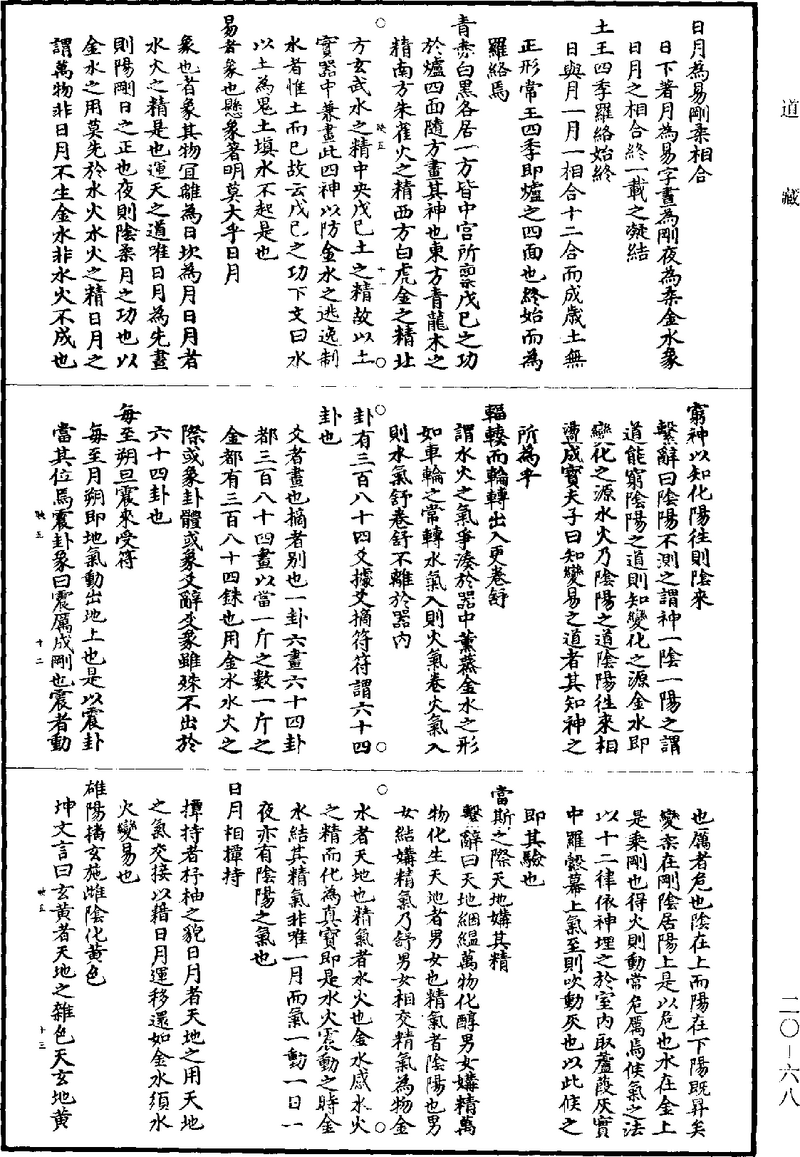 道藏
日月為易剛柔相合
日下著月為易字晝為剛夜為柔金水象
日月之相合終一載之凝結
土王四季羅絡始終
日與月一月一相合十二合而成歲土無
正形常王四季即爐之四面也終始而為
羅絡焉
青赤白黑各居一方皆中宮所稟戊己之功
於爐四面隨方畫其神也東方青龍木之
精南方朱雀火之精西方白虎金之精北
方玄武水之精中央戊己土之精故以土
實器中兼畫此四神以防金水之逃逸制
水者惟土而已故云戊己之功下文曰水
以土為鬼土填水不起是也
易者象也懸象著明莫大乎日月
象也者象其物宜離為日坎為月日月者
水火之精是也運天之道唯日月為先晝
則陽剛日之正也夜則陰柔月之功也以
金水之用莫先於水火水火之精日月之
謂萬物非日月不生金水非水火不成也
窮神以知化陽往則陰來
繫辭曰陰陽不測之謂神一陰一陽之謂
道能窮陰陽之道則知變化之源金水即
變化之源水火乃陰陽之道陰陽往來相
盪成寶夫子曰知變易之道者其知神之
所為乎
輻輳而輪轉出入更卷舒
謂水火之氣爭湊於器中薰蒸金水之形
如車輪之常轉水氣入則火氣卷火氣入
則水氣舒卷舒不離於器內
卦有三百八十四爻據爻摘符符謂六十四
卦也
爻者畫也摘者別也一卦六畫六十四卦
都三百八十四畫以當一斤之數一斤之
金都有三百八十四銖也用金水水火之
際或象卦體或象爻辭爻象雖殊不出於
六十四卦也
每至朔旦震來受符
每至月朔即地氣動出地上也是以震卦
當其位焉震卦象曰震厲成剛也震者動
也厲者危也陰在上而陽在下陽既昇矣
變柰在剛陰居陽上是以危也水在金上
是乘剛也得火則動常危厲焉候氣之法
以十二律依神埋之於室內取蘆葭灰實
中羅縠幕上氣至則吹動灰也以此候之
即其驗也
當斯之際天地媾其精
繫辭曰天地絪縕萬物化醇男女媾精萬
物化生天地者男女也精氣者陰陽也男
女結媾精氣乃舒男女相交精氣為物金
水者天地也精氣者水火也金水感水火
之精而化為真寶即是水火震動之時金
水結其精氣非唯一月而氣一動一日一
夜亦有陰陽之氣也
日月相撢持
撢持者杼柚之貌日月者天地之用天地
之氣交接以藉日月運移還如金水須水
火變易也
雄陽播玄施雌陰化黃色
坤文言曰玄黃者天地之雜色天玄地黃
映五 十一
映五 十二
映五 十三
二〇－六八